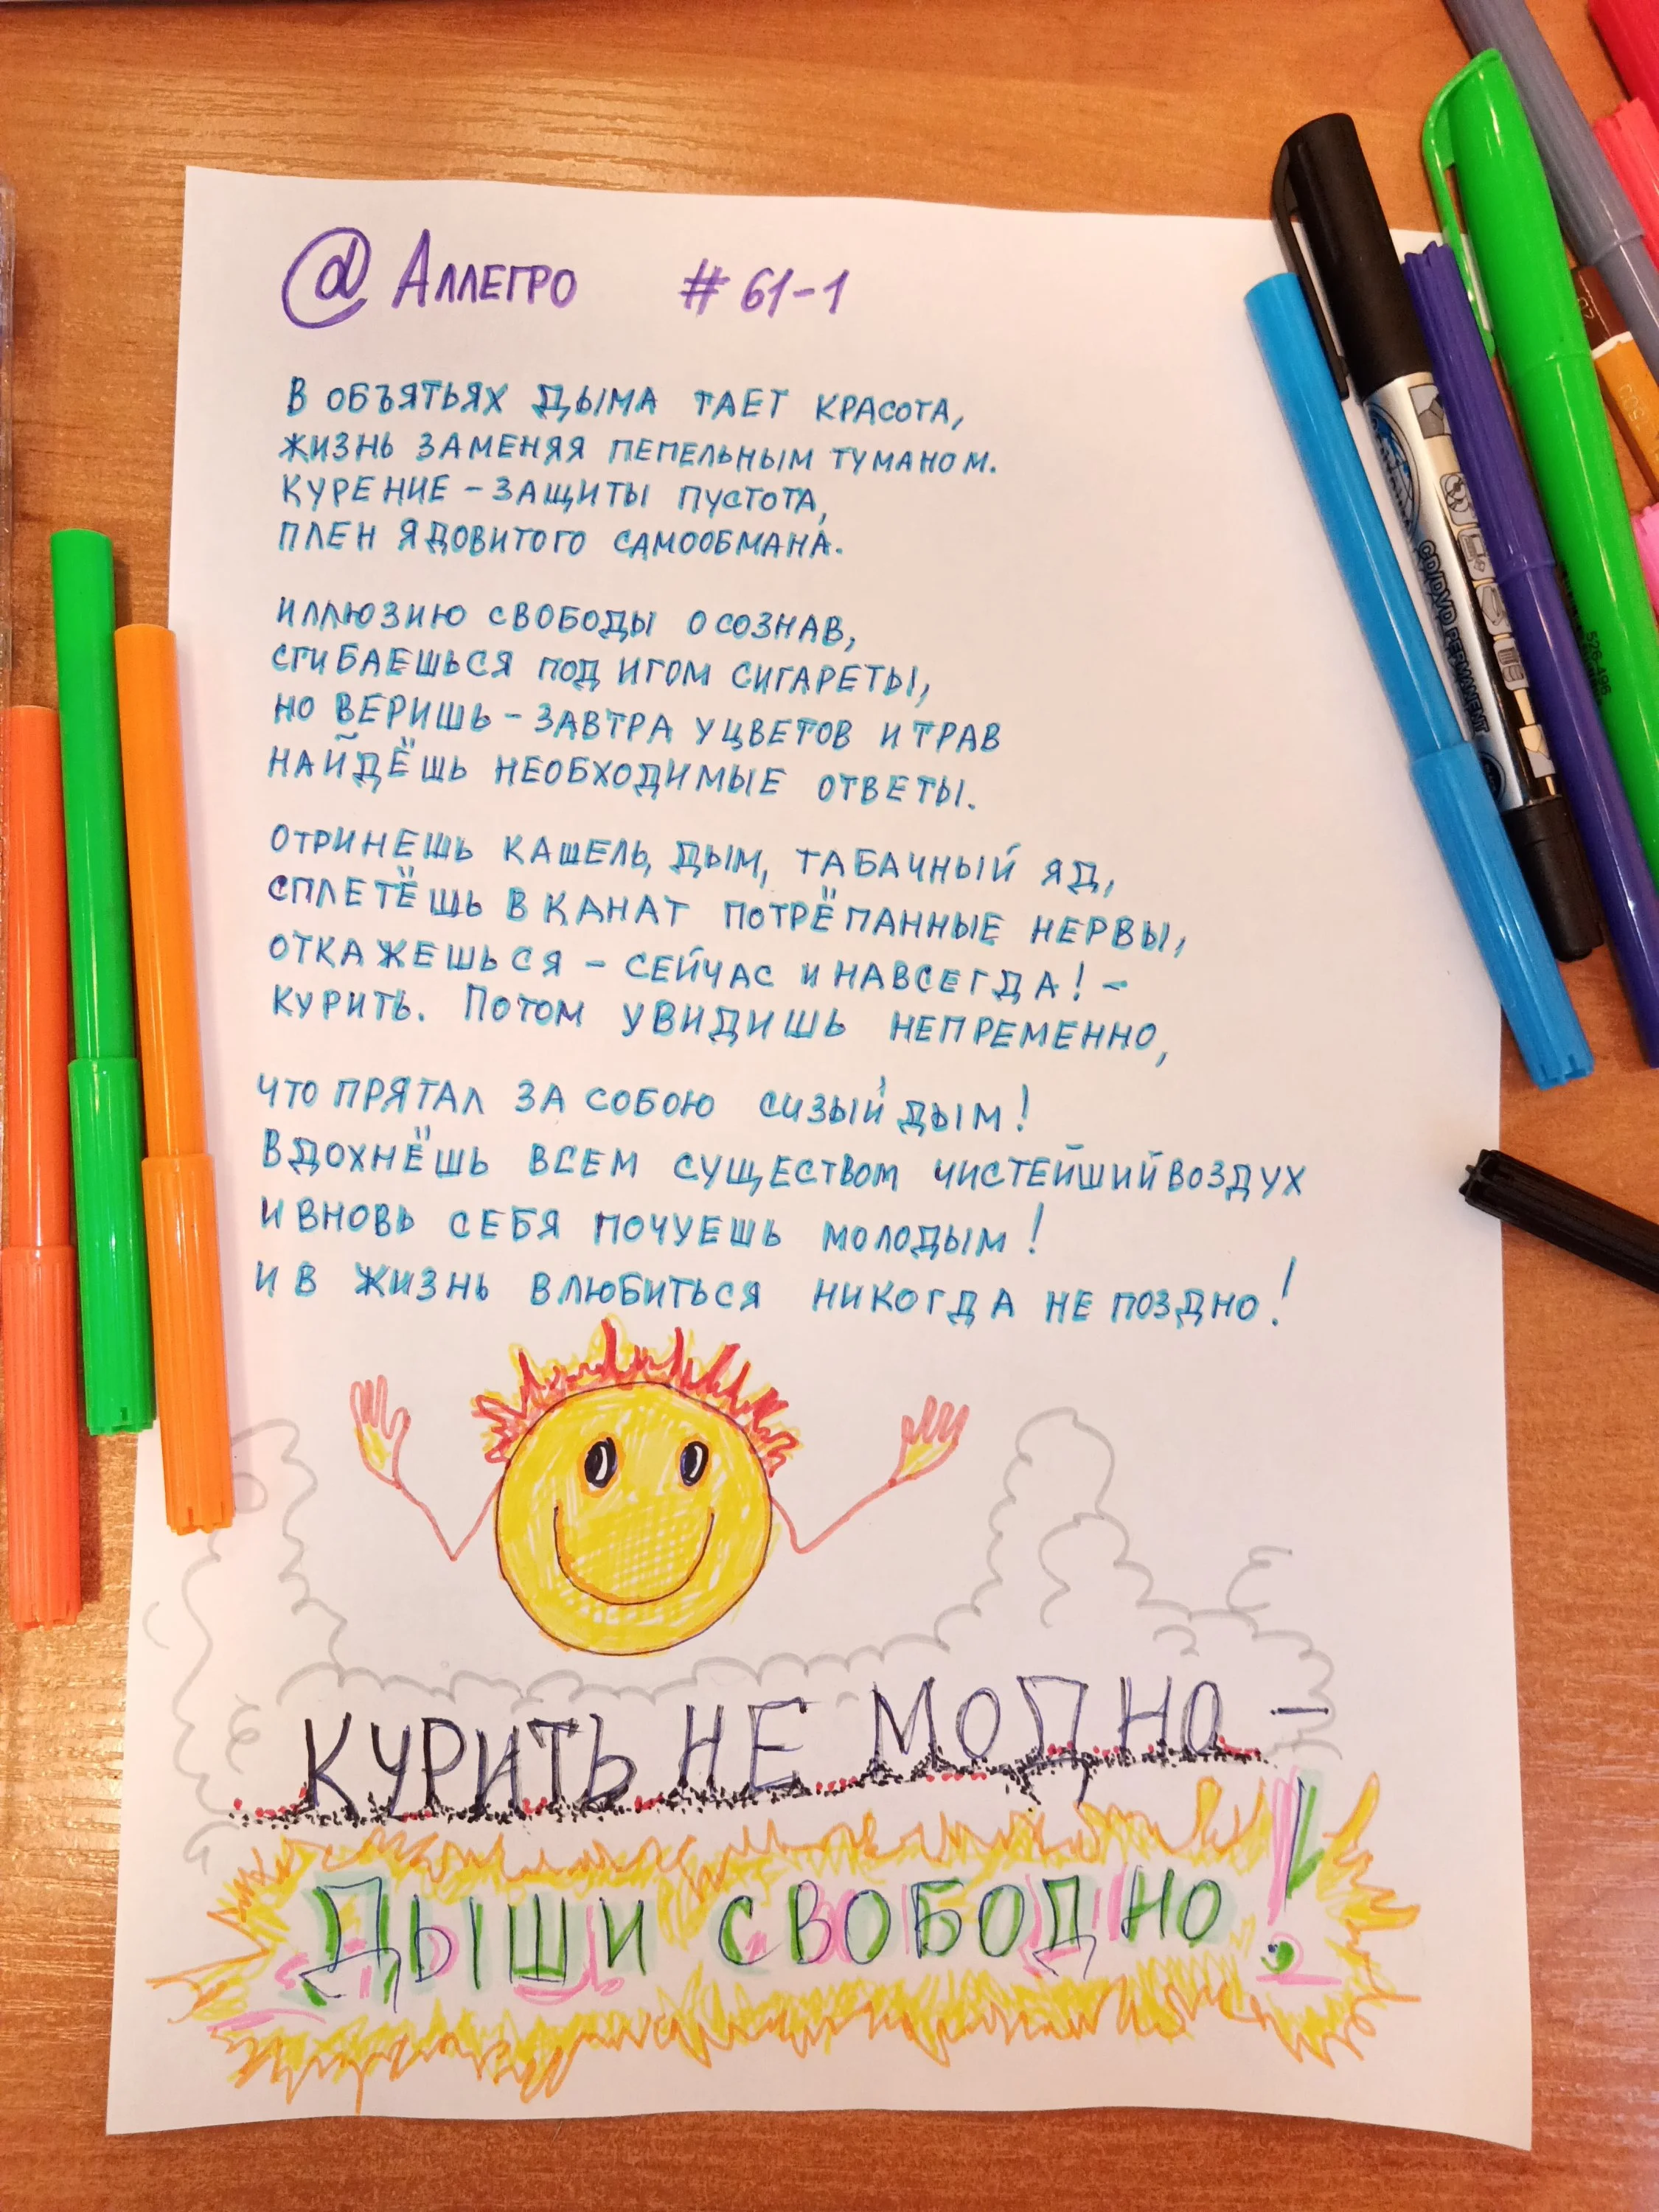 @ Аллегро #61-1
В ОБЪЯТЬЯХ ДЫМА ТАЕТ КРАСОТА,
ЖИЗНЬ ЗАМЕНЯЯ ПЕПЕЛЬНЫМ ТУМАНОМ.
КУРЕНИЕ - ЗАЩИТЫ ПУСТОТА,
ПЛЕН ЯДОВИТОГО САМООБМАНА.
ИЛЛЮЗИЮ СВОБОДЫ ОСОЗНАВ,
СГИБАЕШЬСЯ ПОД ИГОМ СИГАРЕТЫ,
НО ВЕРИШЬ - ЗАВТРА У ЦВЕТОВ И ТРАВ
НАЙДЁШЬ НЕОБХОДИМЫЕ ОТВЕТЫ.
ОТРИНЕШЬ КАШЕЛЬ, ДЫМ, ТАБАЧНЫЙ ЯД,
СПЛЕТЁШЬ В КАНАТ ПОТРЁПАННЫЕ НЕРВЫ,
ОТКАЖЕШЬСЯ - СЕЙЧАС И НАВСЕГДА! -
КУРИТЬ. ПОТОМ УВИДИШЬ НЕПРЕМЕННО,
ЧТО ПРЯТАЛ ЗА СОБОЮ СИЗЫЙ ДЫМ!
ВДОХНЁШЬ ВСЕМ СУЩЕСТВОМ ЧИСТЕЙШИЙ ВОЗДУХ
И ВНОВЬ СЕБЯ ПОЧУЕШЬ МОЛОДЫМ!
И В ЖИЗНЬ ВЛЮБИТЬСЯ НИКОГДА НЕ ПОЗДНО!
КУРИТЬ НЕ МОДНО -
ДЫШИ СВОБОДНО!
CD/DVD PERMANENT